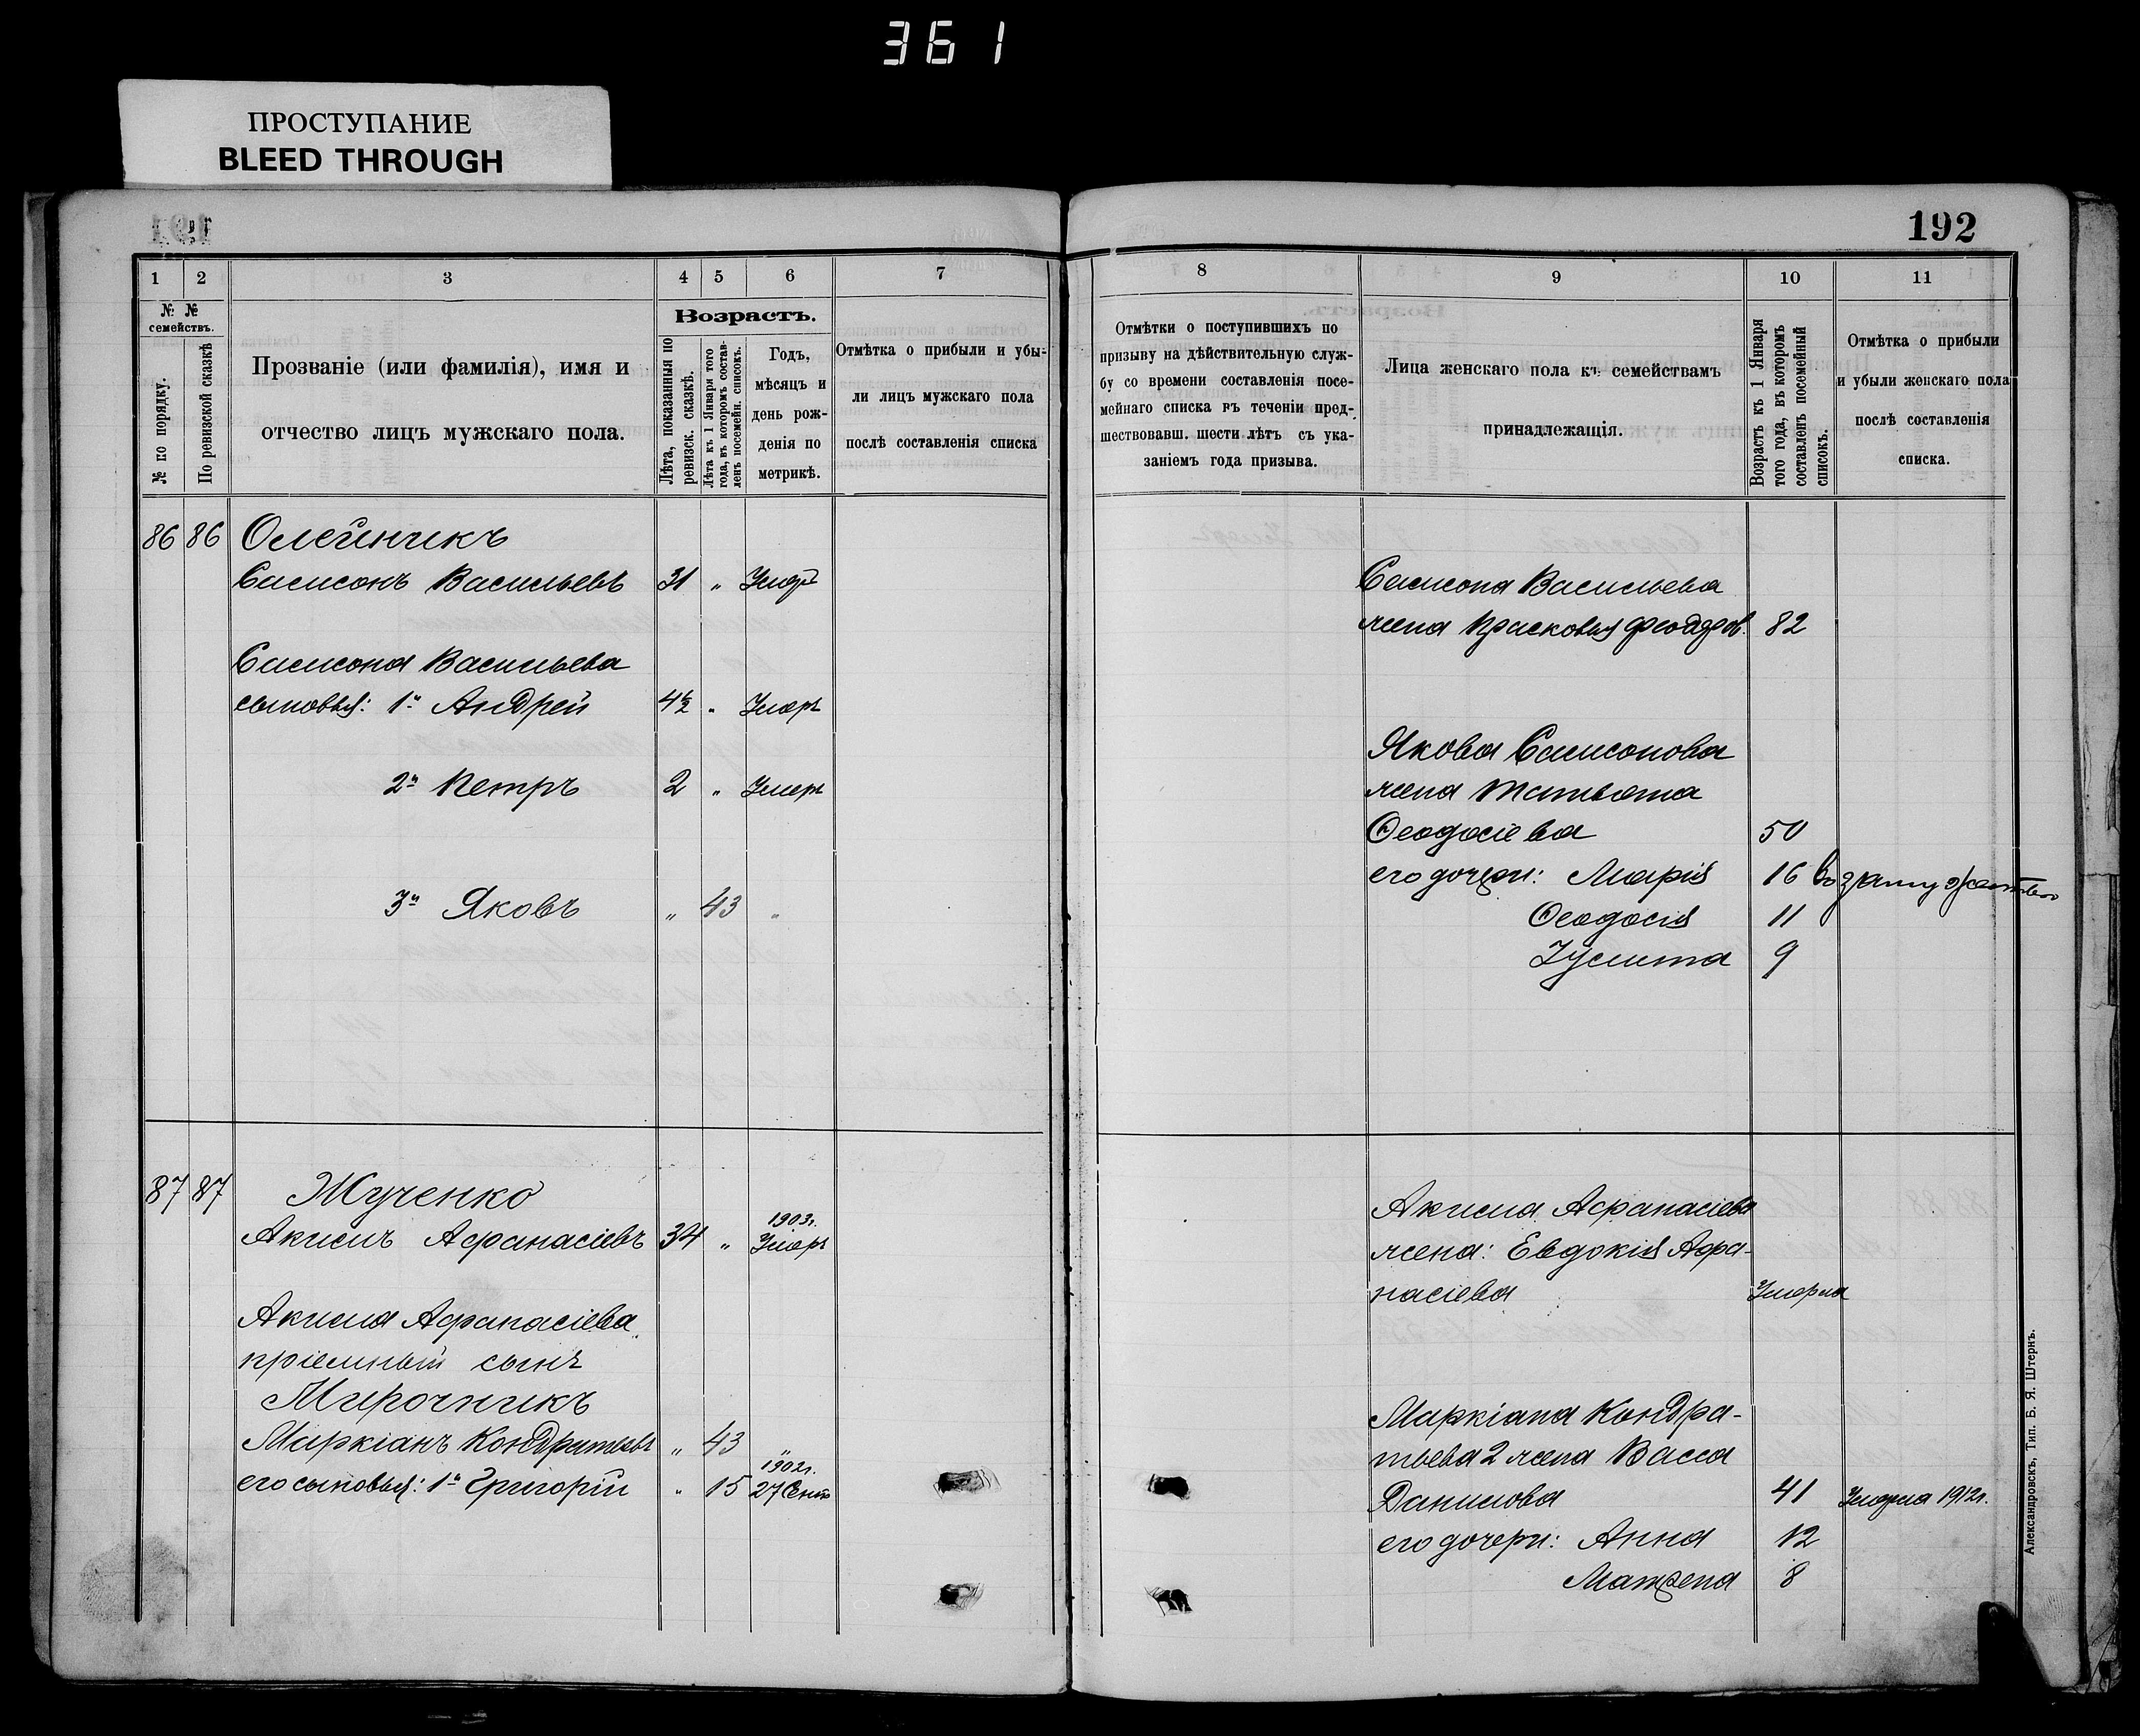 361
ПРОСТУПАНИЕ
BLEED THROUGH
192
1 2 3 4 5 6 7
№ № семействъ.
№ по порядку.
По ревизской сказкѣ
Прозваніе (или фамилія), имя и
отчество лицъ мужскаго пола.
Возрастъ.
Лѣта, показанныя по
ревизск. сказкѣ.
Лѣта къ 1 Января того
года, въ которомъ состав-
ленъ посемейн. списокъ.
Годъ,
мѣсяцъ и
день рож-
денія по
метрикѣ.
Отмѣтка о прибыли и убы-
ли лицъ мужскаго пола
послѣ составленія списка
86 86 Олейникъ
Самсонъ Васильевъ 31 „ Умеръ
Самсона Васильева
сыновья: 1й Андрей 4½ „ Умеръ
2й Петръ 2 „ Умеръ
3й Яковъ „ 43 „
87 87 Жученко
1903г.
Акимъ Афанасіевъ 34 „ Умеръ
Акима Афанасіева
пріемный сынъ
Мирочникъ
Маркіанъ Кондратьевъ „ 43 „
1902г.
его сыновья: 1й Григорій „ 15 27 Сент
8 9 10 11
Отмѣтки о поступившихъ по
призыву на дѣйствительную служ-
бу со времени составленія посе-
мейнаго списка въ теченіи пред-
шествовавш. шести лѣтъ съ ука-
заніемъ года призыва.
Лица женскаго пола къ семействамъ
принадлежащія.
Возрастъ къ 1 Января
того года, въ которомъ
составленъ посемейный
списокъ.
Отмѣтка о прибыли
и убыли женскаго пола
послѣ составленія
списка.
Самсона Васильева
жена Прасковья Феодоров. 82
Якова Самсонова
жена Татьяна
Ѳеодосіева 50
его дочери: Марія 16 въ замужество
Ѳеодосія 11
Іулита 9
Акима Афанасіева
жена: Евдокія Афа-
насіева Умерла
Маркіана Кондра-
тьева 2 жена Васса
Данилова 41 Умерла 1912г.
его дочери: Анна 12
Матрена 8
Александровскъ, Тип. Б. Я. Штернъ.